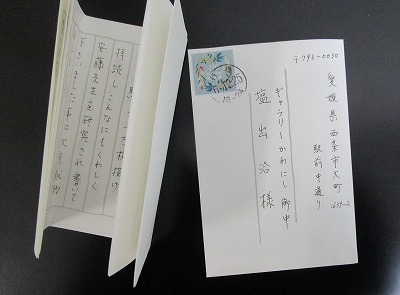 拝読し こんなにもくわしく
安藤先生を研究され 書いて
下さいました事に
〒793-0030
愛媛県西条市大町
1639-2
駅前中通り
ギャラリーかわにし 御中
塩出 治 様